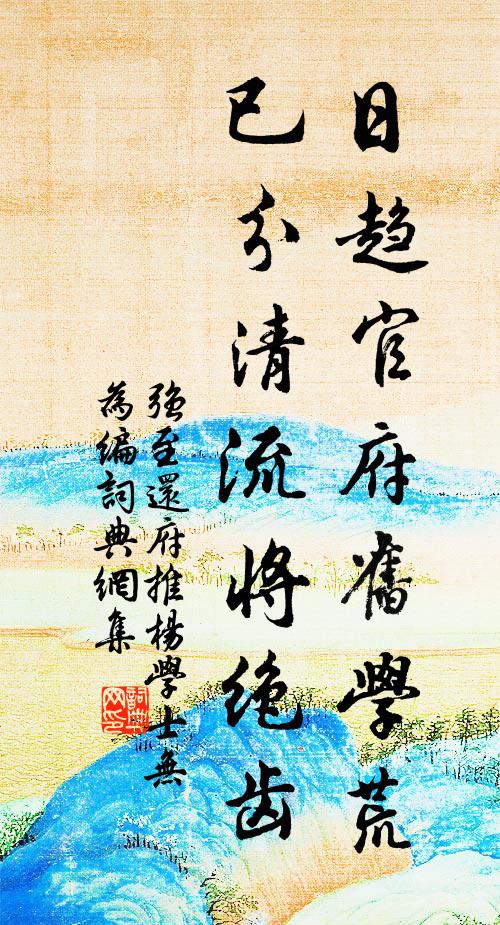 日趋官府舊學荒
已分清流將绝齿
強至還府推楊學士無
為編詞典網集